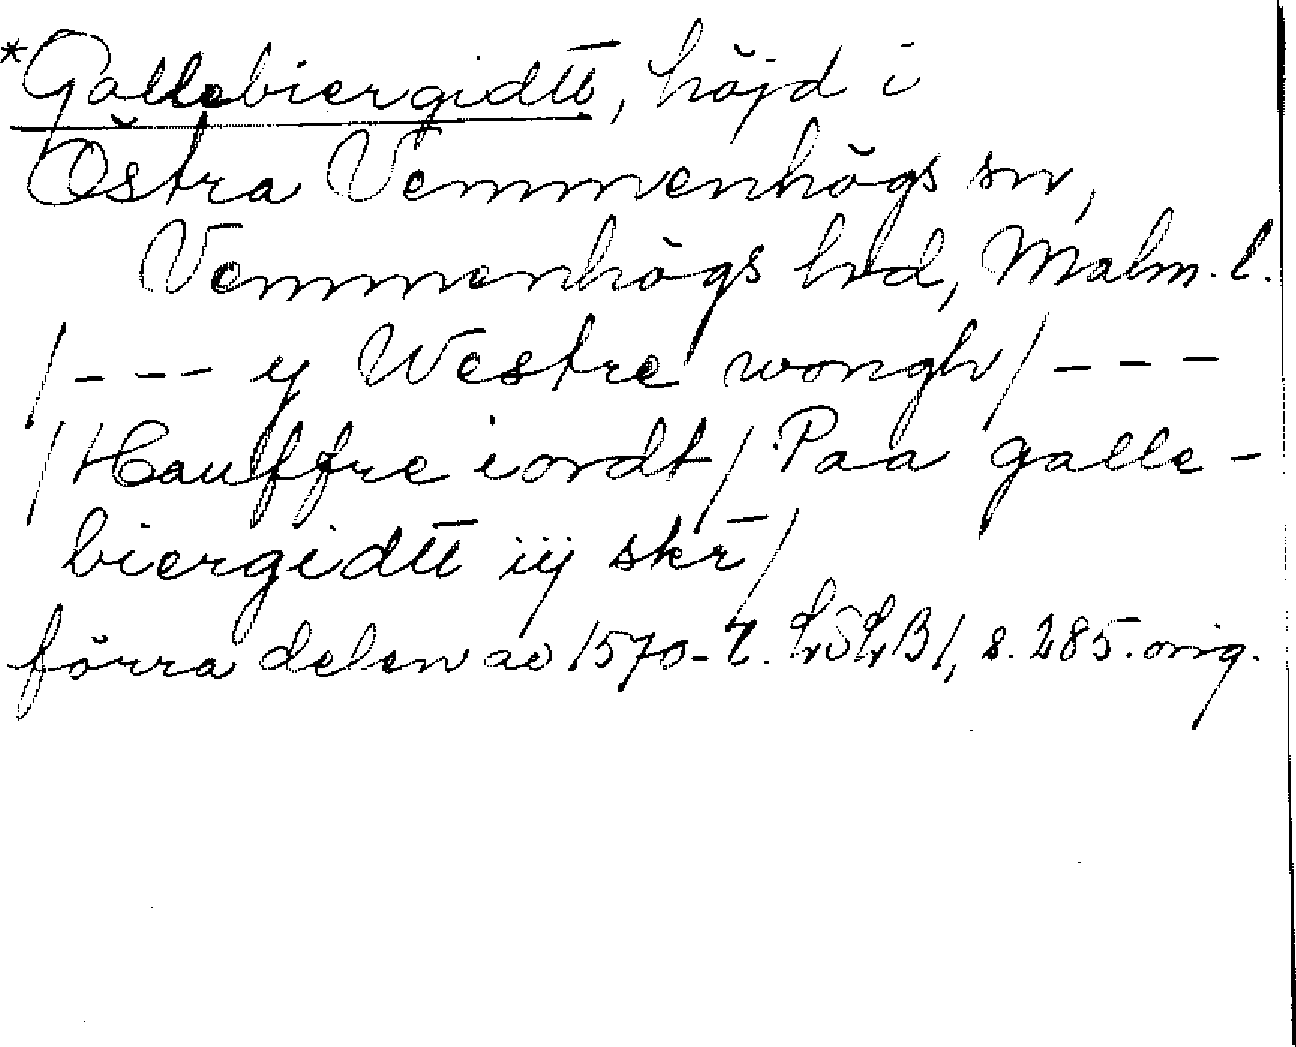 *Gallebiergidtt, höjd i
Östra Vemmenhögs sn,
Vemmenhögs hd, Malm. l.
/ - - - y Westre wongh / - - -
/ Hauffre iordt / Paa galle-
biergidtt iij skr /
förra delen av 1570-t. LSLB1, s. 285. orig.